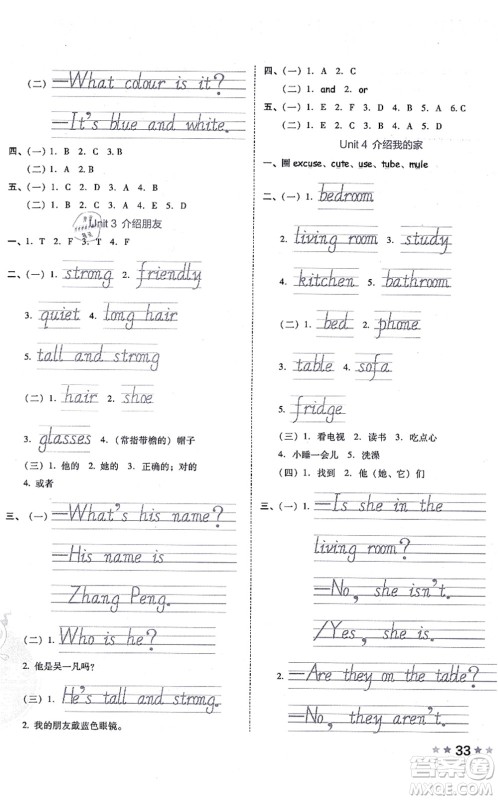 (二) —What colour is it?
—It's blue and white.
四、(一) 1. B 2. C 3. B
(二) 1. A 2. B
五、(一) 1. C 2. D 3. B 4. A 5. E
(二) 1. B 2. A 3. C
Unit 3 介绍朋友
一、1. T 2. F 3. T 4. F
二、(一) 1. strong 2. friendly
3. quiet 4. long hair
5. tall and strong
(二) 1. hair 2. shoe
3. glasses 4. (常指带檐的)帽子
(三) 1. 他的 2. 她的 3. 正确的；对的
4. 或者
三、(一) —What's his name?
—His name is
Zhang Peng.
(二) 1. Who is he?
2. 他是吴一凡吗？
(三) 1. He's tall and strong.
2. 我的朋友戴蓝色眼镜。
四、(一) 1. A 2. C
(二) 1. and 2. or
五、(一) 1. E 2. F 3. B 4. D 5. A 6. C
(二) 1. B 2. A 3. C 4. B
Unit 4 介绍我的家
一、圈 excuse, cute, use, tube, mule
二、(一) 1. bedroom
2. living room 3. study
4. kitchen 5. bathroom
(二) 1. bed 2. phone
3. table 4. sofa
5. fridge
(三) 1. 看电视 2. 读书 3. 吃点心
4. 小睡一会儿 5. 洗澡
(四) 1. 找到 2. 他、她、它们
三、(一) 1. —Is she in the
living room?
—No, she isn't.
/Yes, she is.
2. —Are they on the table?
—No, they aren't.
33